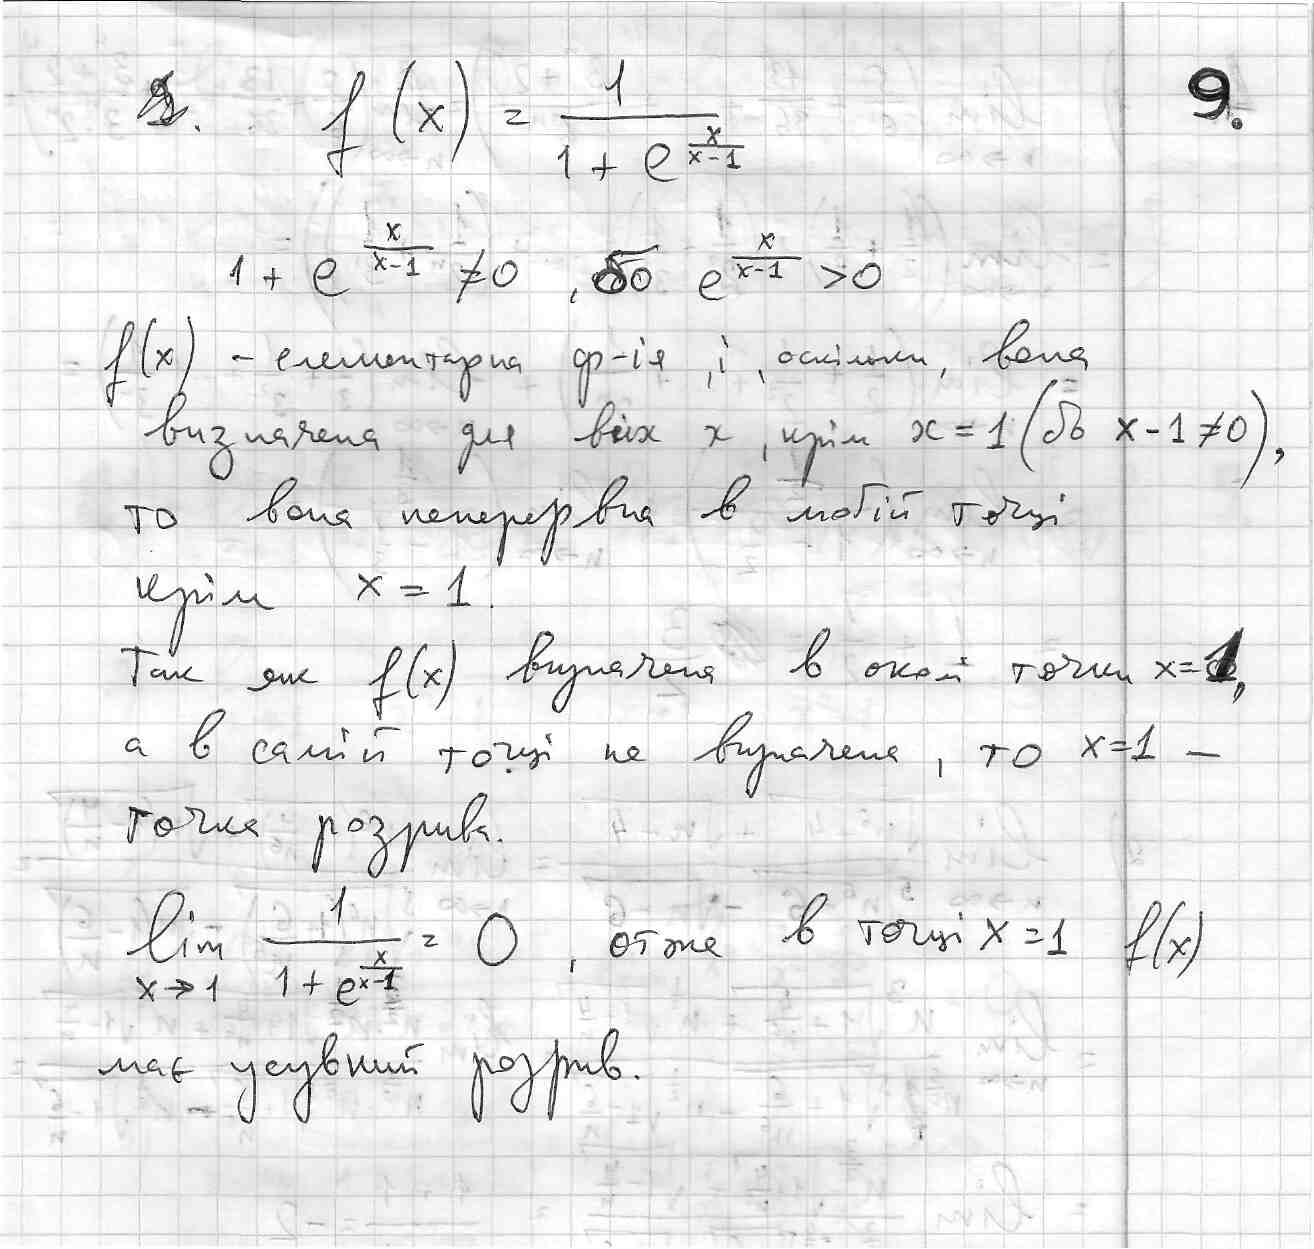 9.
f(x) = 1/(1 + e^(x/(x-1)))
1 + e^(x/(x-1)) ≠ 0, бо e^(x/(x-1)) > 0
f(x) – елементарна ф-ія, і, оскільки, вона
визначена для всіх x, крім x = 1 (бо x - 1 ≠ 0),
то вона неперервна в любій точці
крім x = 1.
Так як f(x) визначена в околі точки x = 1,
а в самій точці не визначена, то x = 1 –
точка розрива.
lim x→1 1/(1 + e^(x/(x-1))) = 0, отже в точці x = 1 f(x)
має усувний розрив.